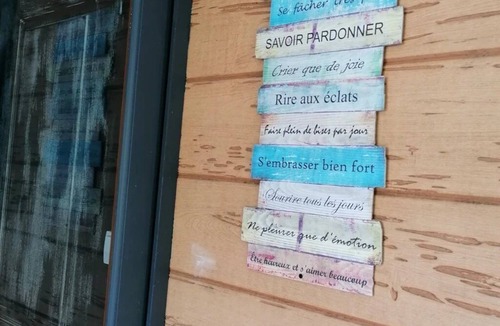 Se fâcher très p
SAVOIR PARDONNER
Crier que de joie
Rire aux éclats
Faire plein de bises par jour
S'embrasser bien fort
Sourire tous les jours
Ne pleurer que d'émotion
Être heureux et s'aimer beaucoup